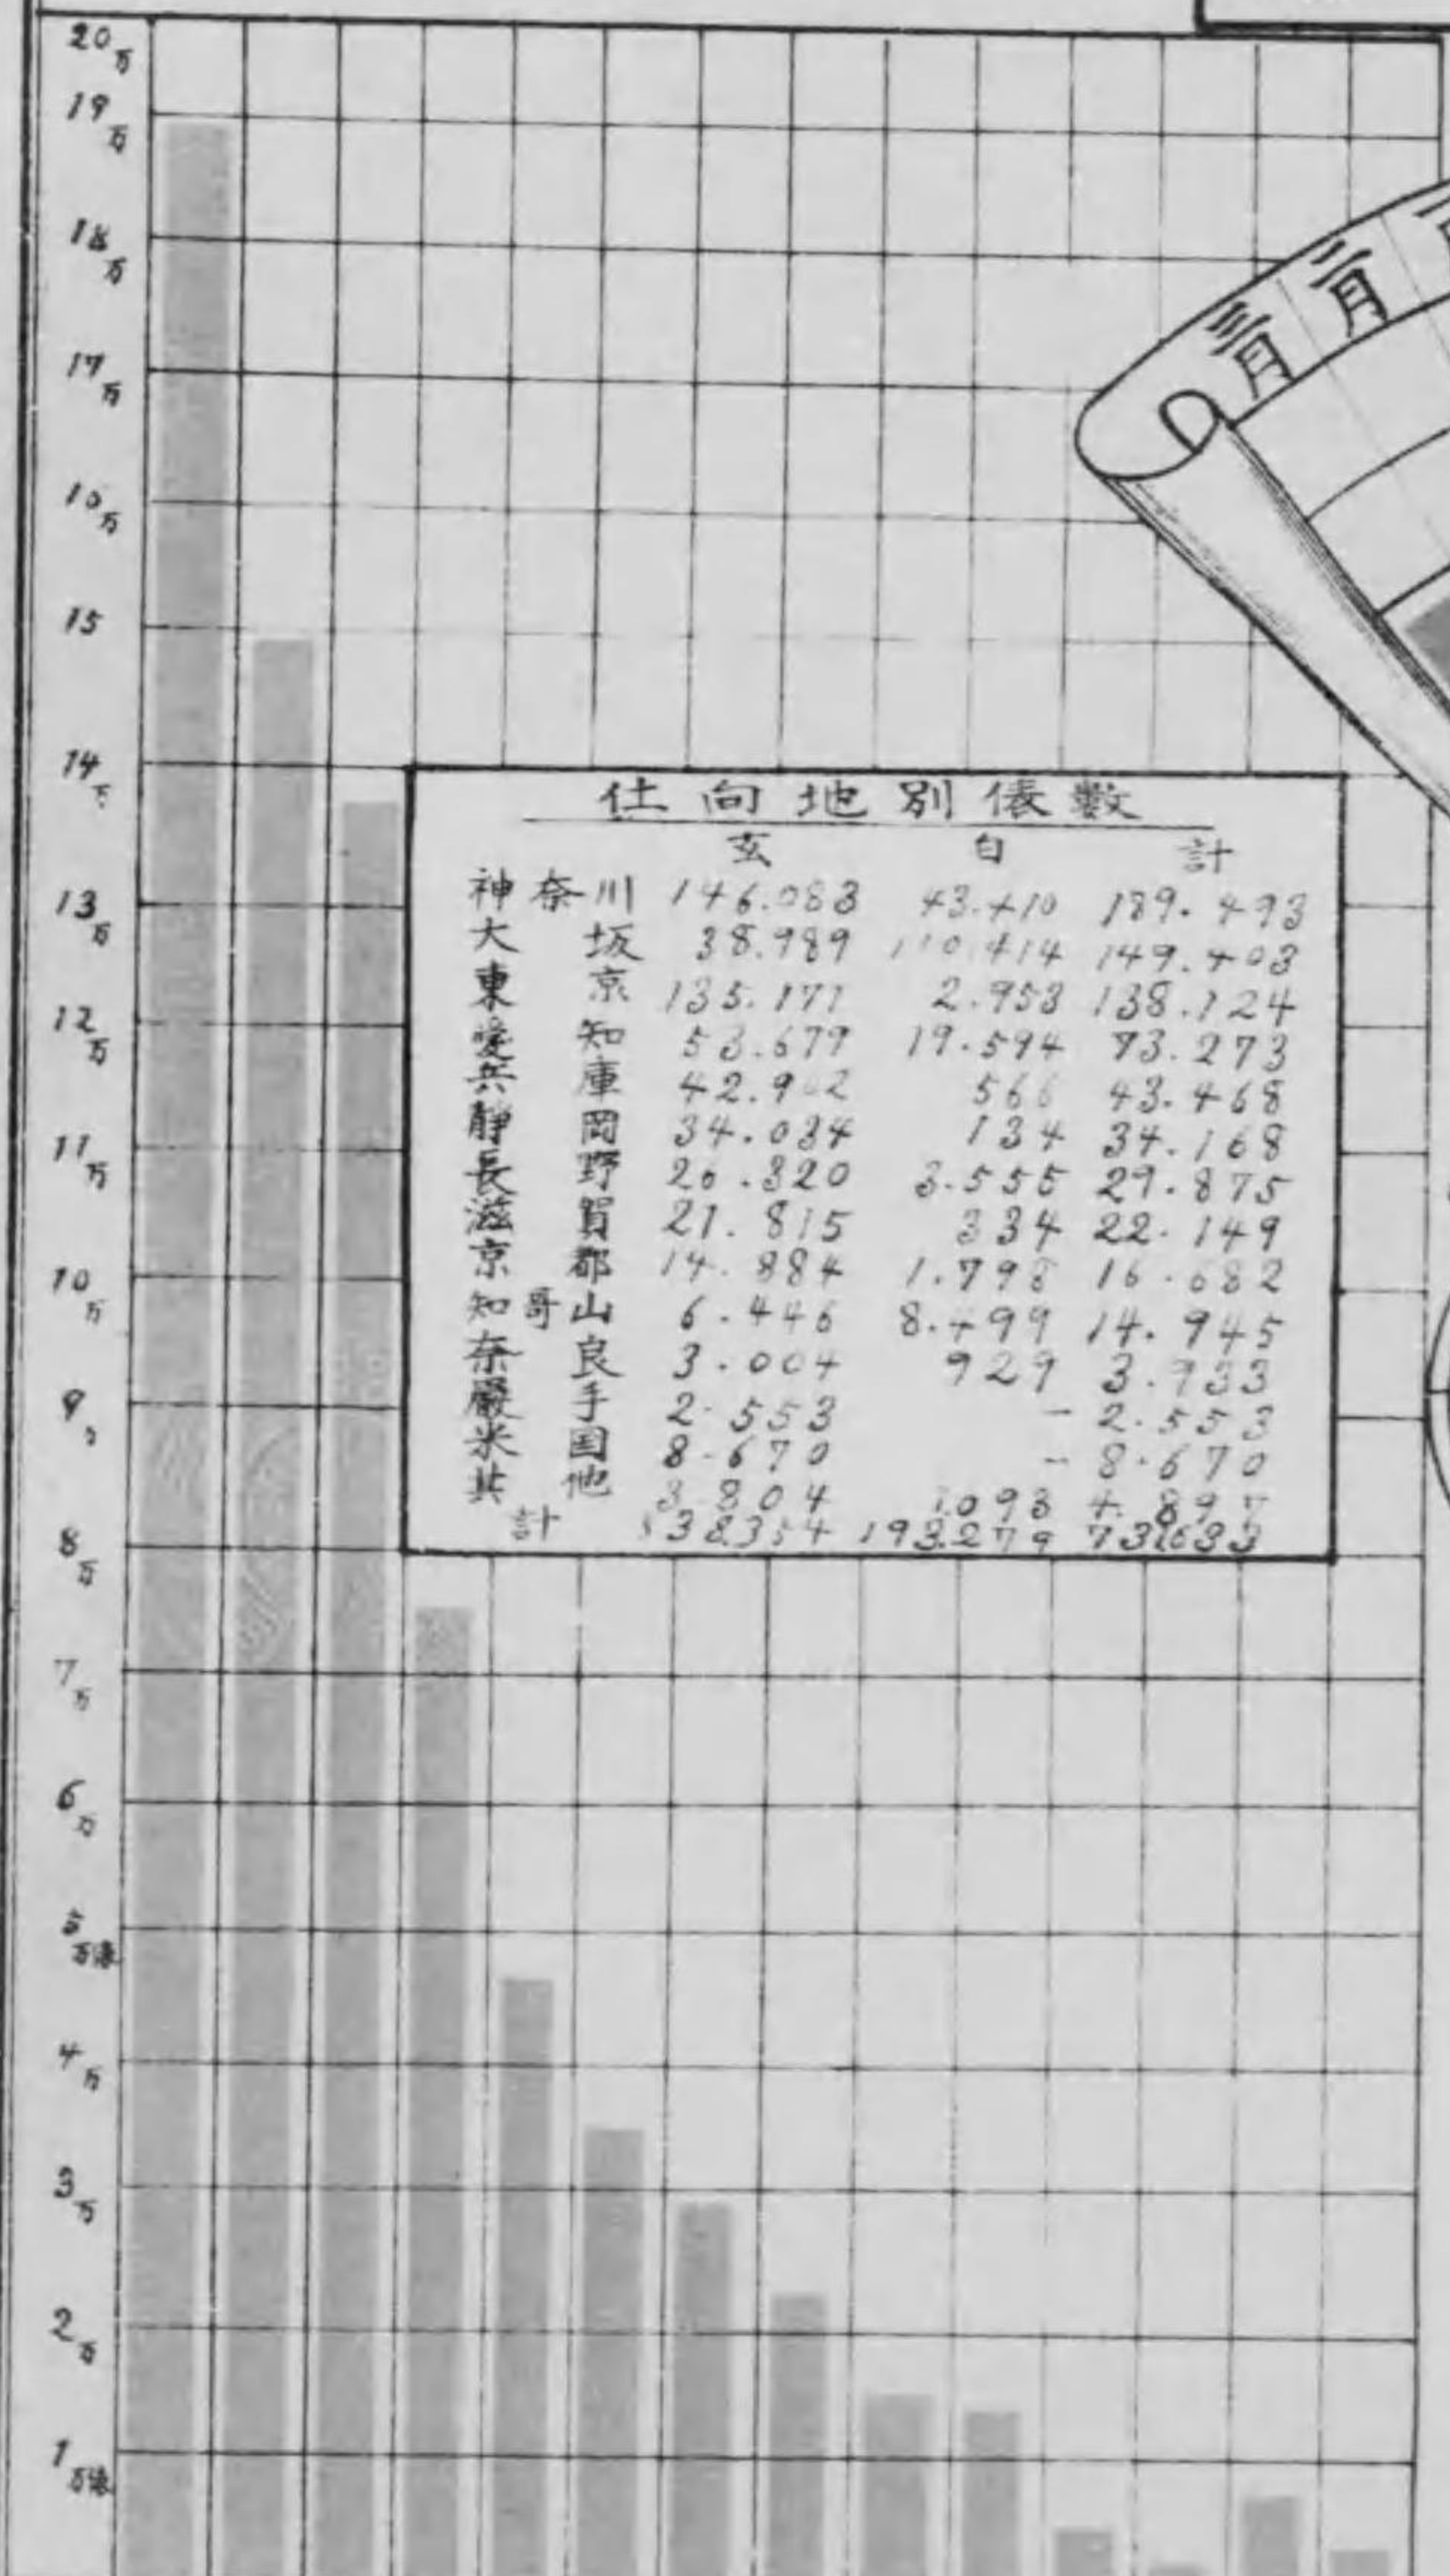 20万
19万
18万
17万
16万
15
14万
13万
12万
11万
10万
9万
8万
7万
6万
5万俵
4万
3万
2万
1万俵
三月
二月
仕向地別俵数
玄 白 計
神奈川 146.083 43.410 189.493
大坂 38.989 110.414 149.403
東京 135.171 2.953 138.124
愛知 53.679 19.594 73.273
兵庫 566 43.468
静岡 34.034 134 34.168
長野 26.320 3.555 29.875
滋賀 21.815 334 22.149
京都 14.884 1.798 16.682
知哥山 6.446 8.499 14.945
奈良 3.004 929 3.933
巖手 2.553 - 2.553
米国 8.670 - 8.670
其他 3.804 1.093 4.897
計 538.354 193.279 731.633